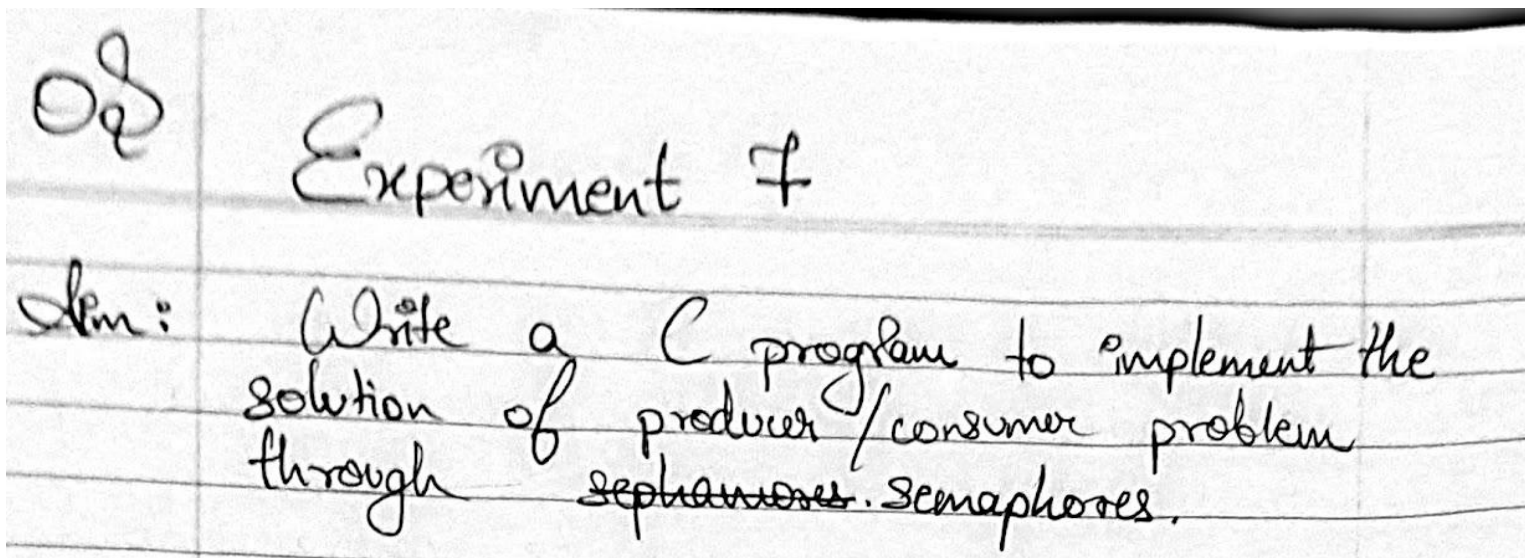 OS
Experiment 7
Aim: Write a C program to implement the
solution of producer/consumer problem
through sephamores. semaphores.